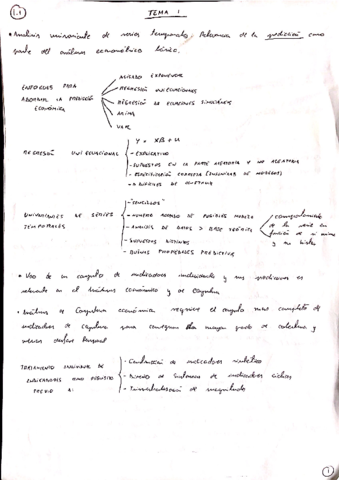 1.1
TEMA 1
• Análisis univariante de series temporales. Relevancia de la predicción como
parte del análisis econométrico básico.
ALISADO EXPONENCIAL
REGRESIÓN UNIECUACIONAL
ENFOQUES PARA
ABORDAR LA PREDICCIÓN
ECONÓMICA
REGRESIÓN DE ECUACIONES SIMULTÁNEAS
ARIMA
VAR
Y = XB + U
- EXPLICATIVO
REGRESIÓN UNIECUACIONAL
- SUPUESTOS EN LA PARTE ALEATORIA Y NO ALEATORIA
- ESPECIFICACIÓN CORRECTA
- "SENCILLOS"
- NÚMERO ACOTADO DE POSIBLES MODELOS
UNIVARIANTES DE SERIES
TEMPORALES
- ANÁLISIS DE DATOS > BASE TEÓRICA
comportamiento
de la serie en
función de sí misma
y su
- SUPUESTOS DISTINTOS
- BUENAS PROPIEDADES PREDICTIVAS
• Uso de un conjunto de indicadores individuales y sus predicciones es
relevante en el Análisis económico y de Coyuntura
• Análisis de Coyuntura económica requiere el conjunto más completo de
indicadores de coyuntura para conseguir mayor grado de cobertura y
TRATAMIENTO INDIVIDUAL DE
INDICADORES COMO REQUISITO
PREVIO A:
- Construcción de indicadores sintéticos
- Diseño de Sistemas de indicadores cíclicos
- Trimestralización de magnitudes
1